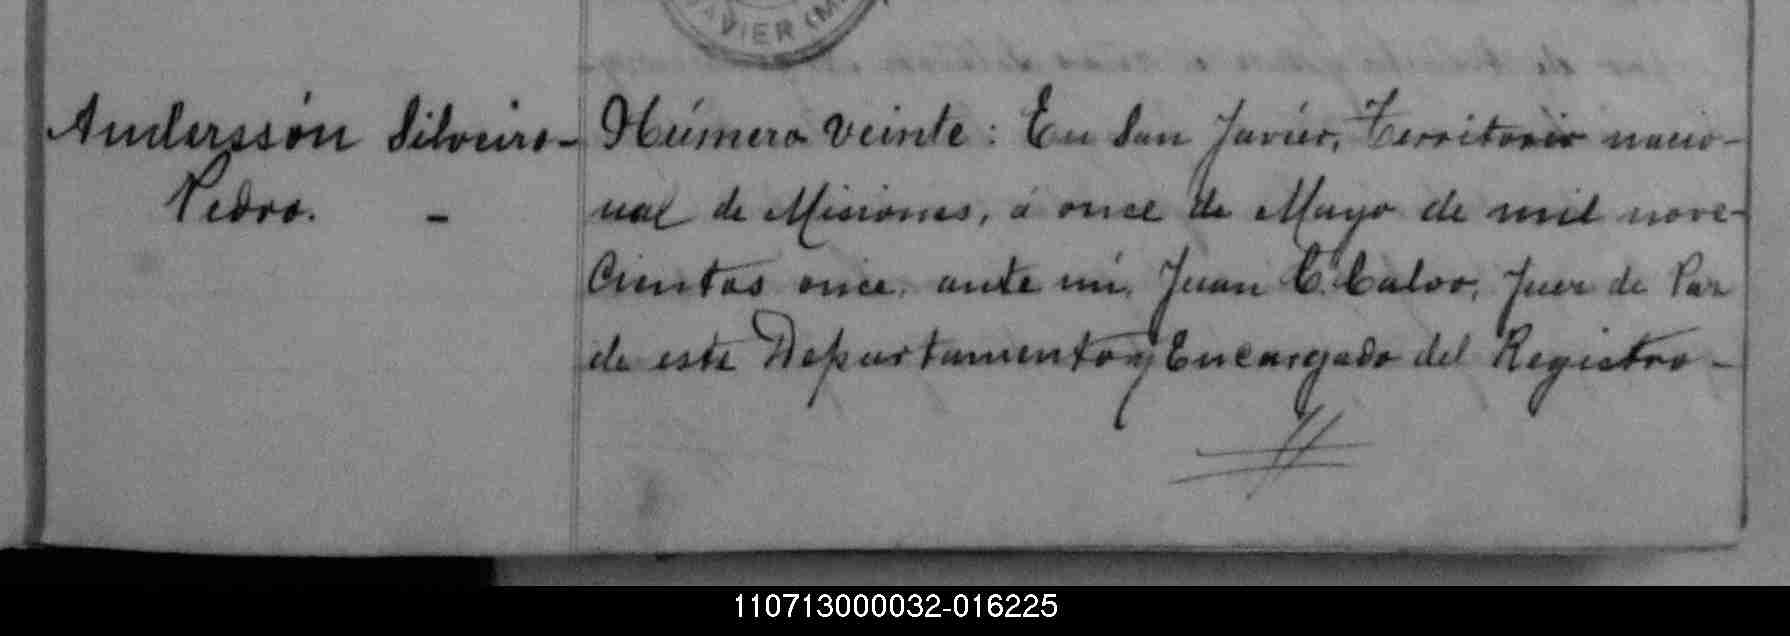 JAVIER (M
Anderssón Silveiro-
Pedro. -
Número veinte: En San Javiér, Territorio nacio-
nal de Misiones, á once de Mayo de mil nove-
cientos once, ante mí, Juan C. Calvo, Juez de Paz
de este Departamento y Encargado del Registro-
110713000032-016225